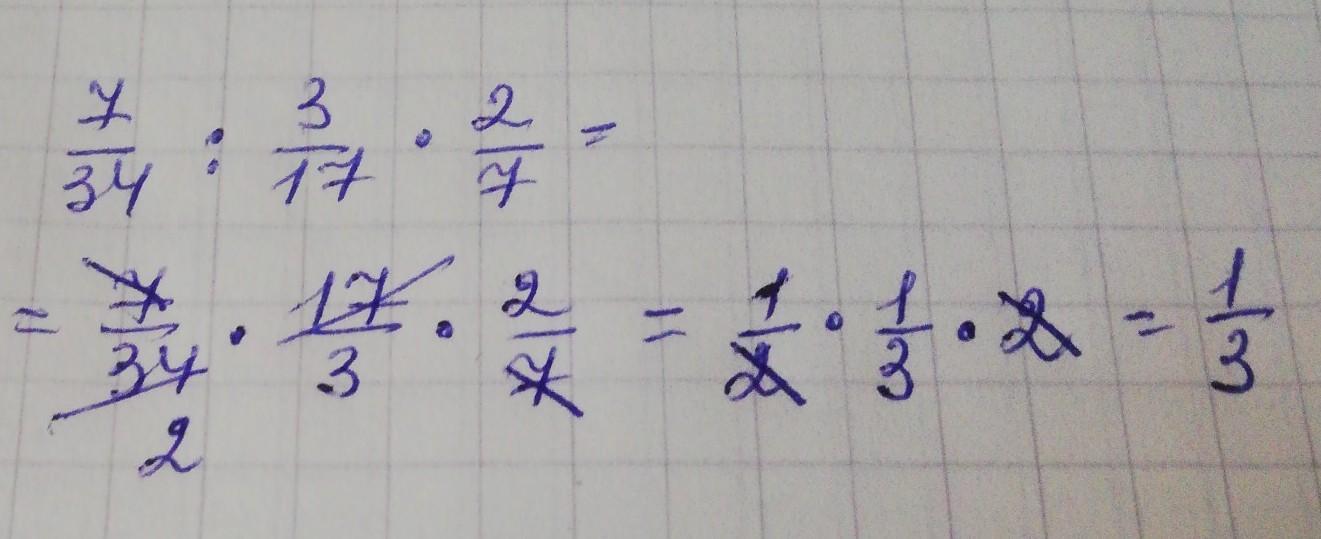 7/34 : 3/17 · 2/7 =
= 7/34 2 · 17/3 · 2/7 = 1/2 · 1/3 · 2 = 1/3